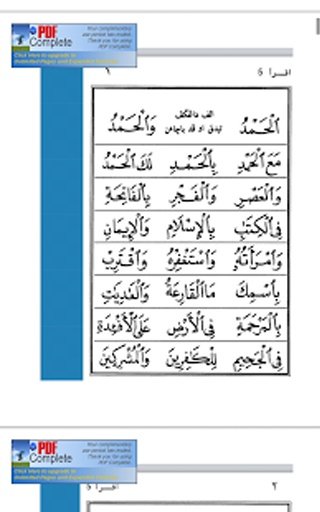 PDF Complete
Your complimentary use period has ended. Thank you for using PDF Complete.
Click Here to upgrade to Unlimited Pages and Expanded Features
اقرأ 6
ٱلْحَمْدُ وَٱلْحَمْدُ
مَعَ ٱلْحَمْدِ بِٱلْحَمْدِ لَكَ ٱلْحَمْدُ
وَٱلْعَصْرِ وَٱلْفَجْرِ بِٱلْفَاتِحَةِ
فِي ٱلْكِتَٰبِ بِٱلْإِسْلَامِ وَٱلْإِيمَانِ
وَٱمْرَأَتُهُ وَٱسْتَغْفِرْهُ وَٱقْتَرِبْ
بِٱسْمِكَ مَا ٱلْقَارِعَةُ وَٱلْعَٰدِيَٰتِ
بِٱلْمَرْحَمَةِ فِي ٱلْأَرْضِ عَلَى ٱلْأَفْئِدَةِ
فِي ٱلْجَحِيمِ لِلْكَٰفِرِينَ وَٱلْمُشْرِكِينَ
PDF Complete
Your complimentary use period has ended. Thank you for using PDF Complete.
Click Here to upgrade to Unlimited Pages and Expanded Features
٢ اقرأ 6